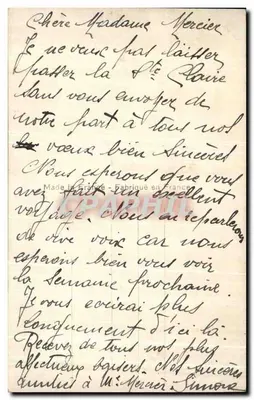 Chère Madame Mercier
Je ne veux pas laisser
passer la Ste Claire
sans vous envoyer de
notre part à tous nos
voeux bien sincères
Nous esperons que vous
avez fait un excellent
voyage. Nous en reparlerons
de vive voix car nous
esperons bien vous voir
la semaine prochaine.
Je vous ecirai plus
longuement d'ici là.
Recevez de tous nos plus
affectueux baisers. Nos sincères
amitiés à Mr Mercier. Simone
Made in France - Fabriqué en France
CPAPHIL